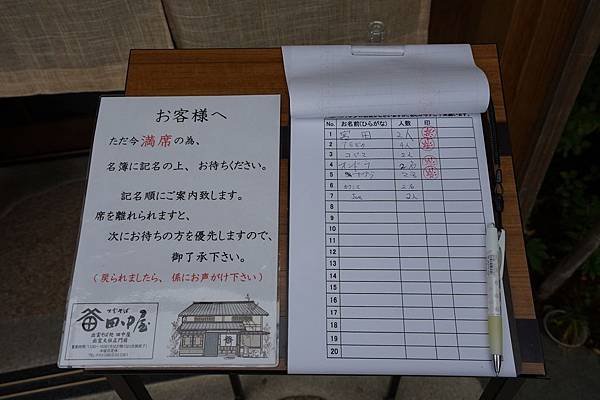 お客様へ
ただ今満席の為、
名簿に記名の上、お待ちください。
記名順にご案内致します。
席を離れられますと、
次にお待ちの方を優先しますので、
御了承下さい。
(戻られましたら、係にお声がけ下さい)
田中屋
出雲そば処 田中屋
出雲大社正門前
No. お名前(ひらがな) 人数 印
1 宮田 2人
2 4人
3 2人
4 2名
5 2名
6 2名
7 2人
8
9
10
11
12
13
14
15
16
17
18
19
20